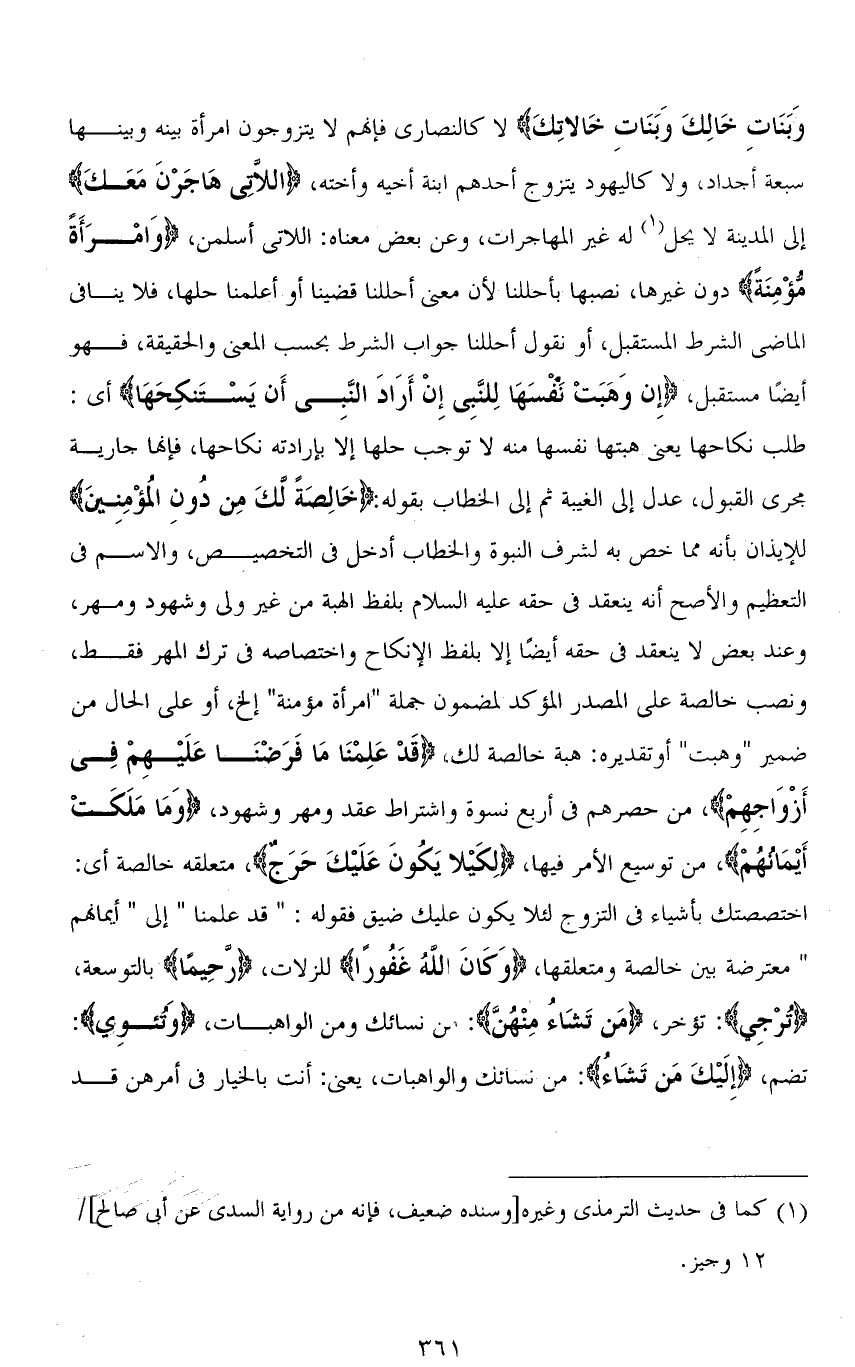 وَبَنَاتِ خَالِكَ وَبَنَاتِ خَالاتِكَ﴾ لا كالنصارى فإنهم لا يتزوجون امرأة بينه وبينها
سبعة أجداد، ولا كاليهود يتزوج أحدهم ابنة أخيه وأخته، ﴿اللاَّتِى هَاجَرْنَ مَعَكَ﴾
إلى المدينة لا يحل(١) له غير المهاجرات، وعن بعض معناه: اللاتى أسلمن، ﴿وَامْرَأَةً
مُّؤْمِنَةً﴾ دون غيرها، نصبها بأحللنا لأن معنى أحللنا قضينا أو أعلمنا حلها، فلا ينافى
الماضى الشرط المستقبل، أو نقول أحللنا جواب الشرط بحسب المعنى والحقيقة، فهو
أيضًا مستقبل، ﴿إِن وَهَبَتْ نَفْسَهَا لِلنَّبِى إِنْ أَرَادَ النَّبِى أَن يَسْتَنكِحَهَا﴾ أى :
طلب نكاحها يعنى هبتها نفسها منه لا توجب حلها إلا بإرادته نكاحها، فإنها جارية
مجرى القبول، عدل إلى الغيبة ثم إلى الخطاب بقوله:﴿خَالِصَةً لَّكَ مِن دُونِ الْمُؤْمِنِينَ﴾
للإيذان بأنه مما خص به لشرف النبوة والخطاب أدخل فى التخصيص، والاسم فى
التعظيم والأصح أنه ينعقد فى حقه عليه السلام بلفظ الهبة من غير ولى وشهود ومهر،
وعند بعض لا ينعقد فى حقه أيضًا إلا بلفظ الإنكاح واختصاصه فى ترك المهر فقط،
ونصب خالصة على المصدر المؤكد لمضمون جملة "امرأة مؤمنة" إلخ، أو على الحال من
ضمير "وهبت" أوتقديره: هبة خالصة لك، ﴿قَدْ عَلِمْنَا مَا فَرَضْنَا عَلَيْهِمْ فِى
أَزْوَاجِهِمْ﴾، من حصرهم فى أربع نسوة واشتراط عقد ومهر وشهود، ﴿وَمَا مَلَكَتْ
أَيْمَانُهُمْ﴾، من توسيع الأمر فيها، ﴿لِكَيْلا يَكُونَ عَلَيْكَ حَرَجٌ﴾، متعلقه خالصة أى:
اختصصتك بأشياء فى التزوج لئلا يكون عليك ضيق فقوله : " قد علمنا " إلى " أيمانهم
" معترضة بين خالصة ومتعلقها، ﴿وَكَانَ اللَّهُ غَفُورًا﴾ للزلات، ﴿رَّحِيمًا﴾ بالتوسعة،
﴿تُرْجِي﴾: تؤخر، ﴿مَن تَشَاءُ مِنْهُنَّ﴾: من نسائك ومن الواهبات، ﴿وَتُئْوِي﴾:
تضم، ﴿إِلَيْكَ مَن تَشَاءُ﴾: من نسائك والواهبات، يعنى: أنت بالخيار فى أمرهن قد
(١) كما فى حديث الترمذى وغيره[وسنده ضعيف، فإنه من رواية السدى عن أبى صالح]/
١٢ وجيز.
٣٦١